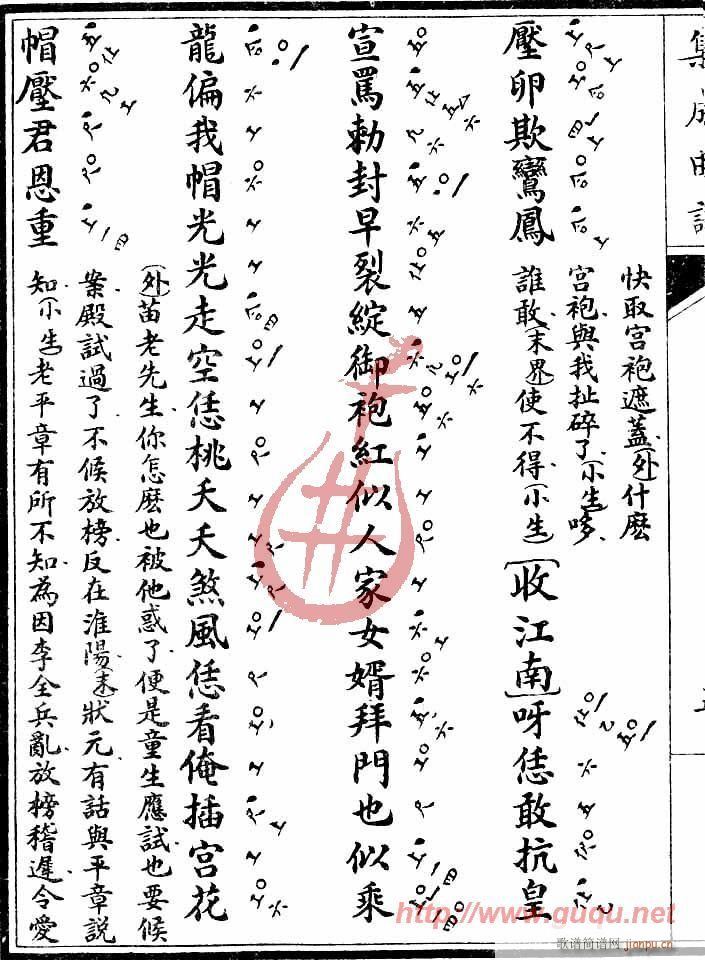 集成曲譜
壓卵欺鸞鳳
快取宮袍遮蓋(外)什麽
宮袍與我扯碎了(小生)哆
誰敢(末)界使不得(小生)
【收江南】呀恁敢抗皇
宣罵勅封早裂綻御袍紅似人家女婿拜門也似乘
龍偏我帽光光走空恁桃夭夭煞風恁看俺插宮花
(外)苗老先生你怎麽也被他惑了便是童生應試也要候
案殿試過了不候放榜反在淮陽(末)狀元有話與平章說
知(小生)老平章有所不知為因李全兵亂放榜稽遲令愛
帽壓君恩重
http://www.guqu.net
歌谱简谱网 jianpu.cn